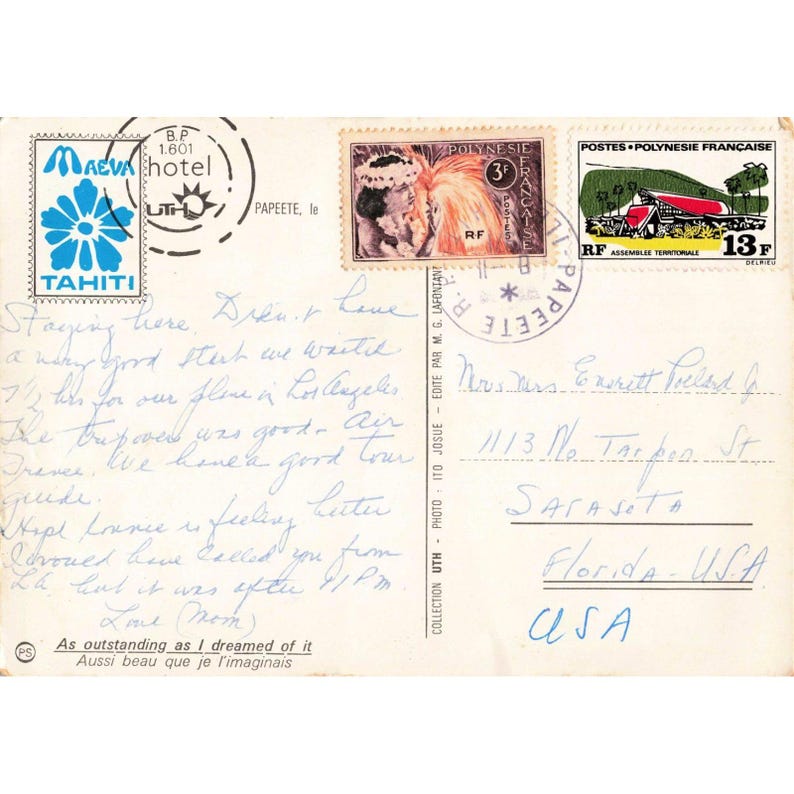 MAEVA
TAHITI
B.P
1.601
hotel
UTH
PAPEETE, le
POLYNÉSIE FRANÇAISE
3F
POSTES
RF
POSTES • POLYNESIE FRANÇAISE
RF ASSEMBLEE TERRITORIALE 13F
DELRIEU
PAPEETE R.P.
Staying here. Didn't have
a very good start we waited
7½ hrs for our plane in Los Angeles.
The trip over was good - Air
France. We have a good tour
guide.
Hope Connie is feeling better
I would have called you from
LA but it was after 11 PM
Love (Mom)
PS
As outstanding as I dreamed of it
Aussi beau que je l'imaginais
COLLECTION UTH - PHOTO : ITO JOSUE - EDITE PAR M. G. LAFONTAN
Mrs Everett Pollard Jr
1113 No Tarpon St.
Sarasota
Florida - USA
USA